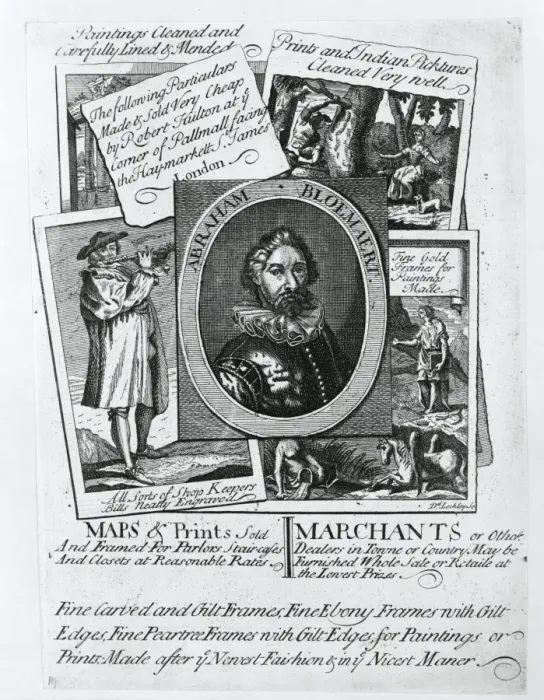 Paintings Cleaned and
Carefully Lined & Mended
Prints and Indian Picktures
Cleaned Very well.
The following Particulars
Made & Sold Very Cheap
by Robert Fuilton at ye
Corner of Pallmall facing
the Haymarkett St. James
London
ABRAHAM · BLOEMAERT.
Fine Gold
Frames for
Paintings
Made
All Sorts of Shop Keepers
Bills Neatly Engraved
MAPS & Prints Sold
And Framed For Parlors Staircases
And Closets at Reasonable Rates
MARCHANTS or Other
Dealers in Towne or Country May be
Furnished Whole Sale or Retaile at
the Lowest Prizes
Fine Carved and Gilt Frames, Fine Ebony Frames with Gilt
Edges, Fine Peartree Frames with Gilt Edges, for Paintings or
Prints Made after ye Newest Faishion & in ye Nicest Maner